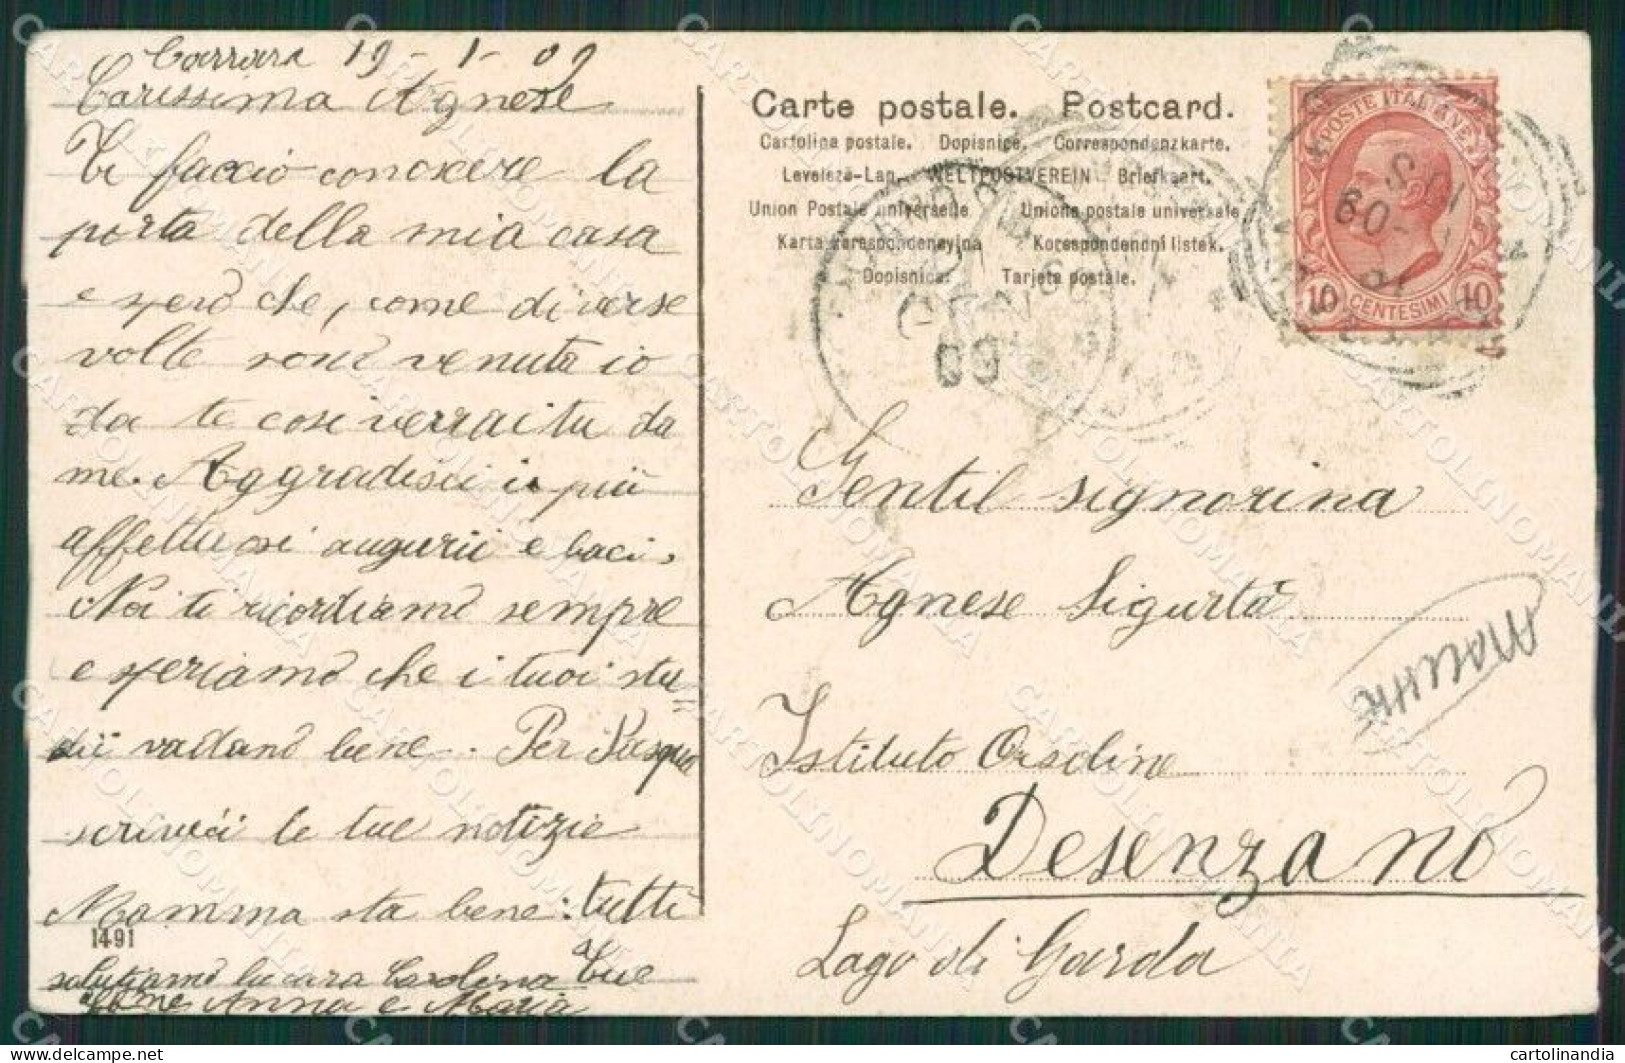 Carrara 19-1-09
Carissima Agnese
Ti faccio conoscere la
porta della mia casa
e spero che, come diverse
volte sono venuta io
da te cosi verrai tu da
me. Aggradisci i più
affettuosi augurii e baci.
Noi ti ricordiamo sempre
e speriamo che i tuoi stu=
dii vadano bene. Per Pasqua
scrivici le tue notizie
Mamma sta bene: tutti
1491
salutiamo la cara Carolina Tue
Anna e Maria
Carte postale. Postcard.
Cartolina postale. Dopisnice. Correspondenzkarte.
Levelezö-Lap. WELTPOSTVEREIN Briefkaart.
Union Postale universelle Unione postale universale
Karta korespondencyjna Korespondendni listek.
Dopisnica. Tarjeta postale.
POSTE ITALIANE
10 CENTESIMI 10
GEN
09
Gentil signorina
Agnese Sigurtà
Istituto Orsoline
Desenzano
Lago di Garda
CARTOLINOMANIA
delcampe.net
cartolinandia